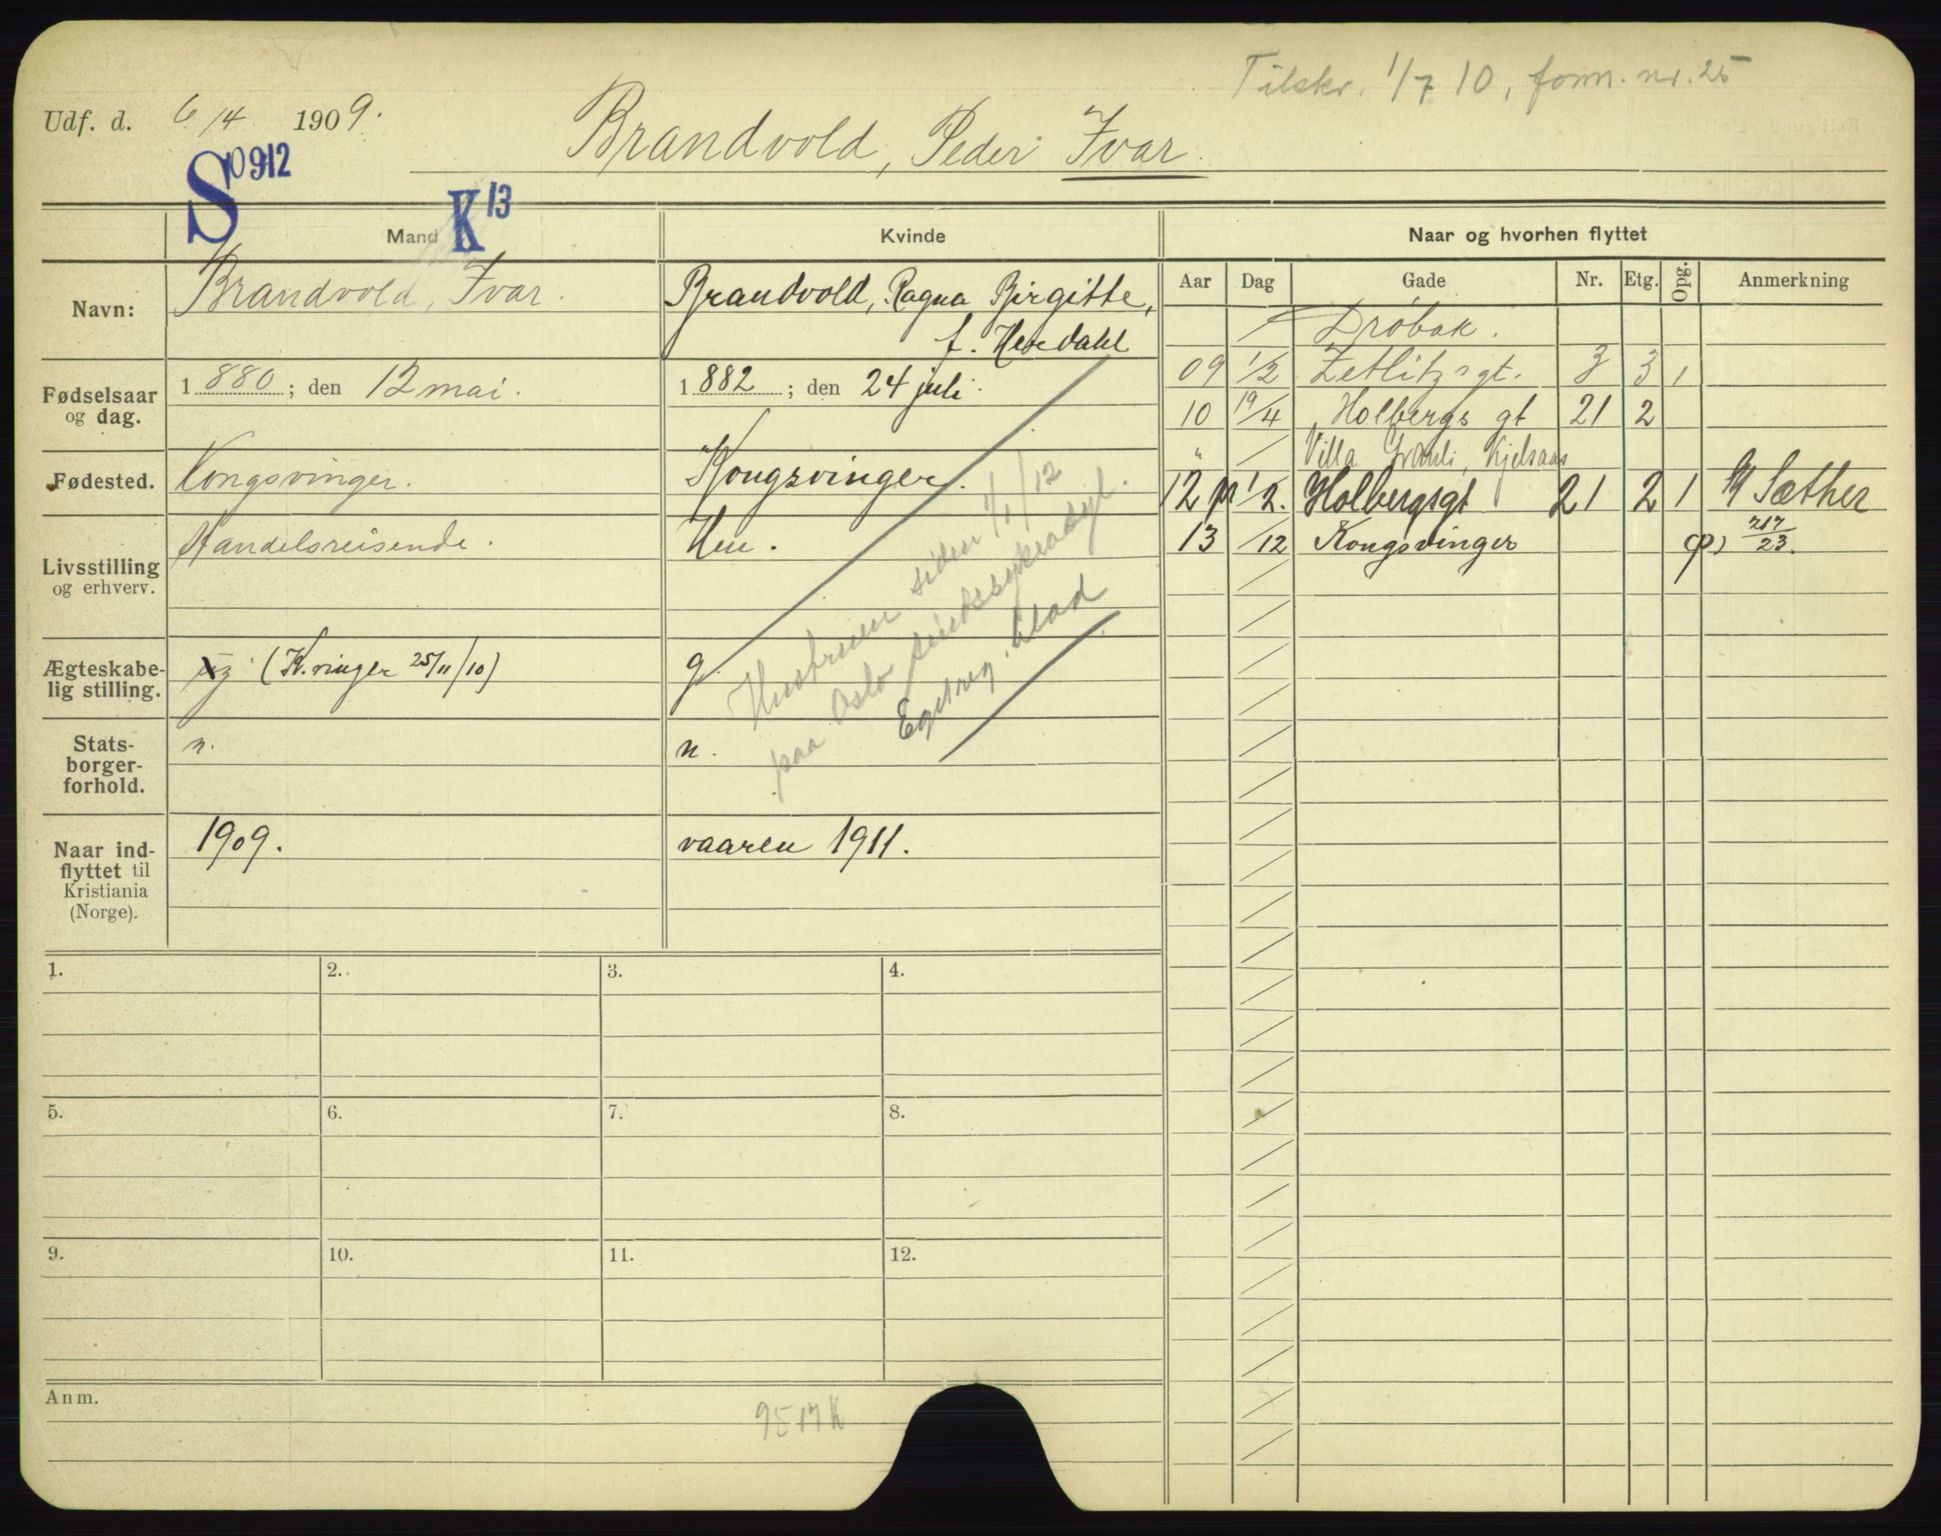 Tilskr. 1/7 10, fom. nr. 25
Udf. d. 6/4 1909.
Brandvold, Peder Ivar.
S 0912
K 13
Mand
Kvinde
Naar og hvorhen flyttet
Aar Dag Gade Nr. Etg. Opg. Anmerkning
Navn:
Brandvold, Ivar.
Brandvold, Ragna Birgitte,
f. Herdahl
Fødselsaar
og dag.
1880; den 12 mai.
1882; den 24 juli.
Fødested.
Kongsvinger.
Kongsvinger.
Livsstilling
og erhverv.
Handelsreisende.
Hu.
Ægteskabe-
lig stilling.
g (K.vinger 25/11/10)
g.
Stats-
borger-
forhold.
n.
n.
Naar ind-
flyttet til
Kristiania
(Norge).
1909.
vaaren 1911.
Hustruen siden 1/1/12
paa Oslo sindssykeasyl.
Eget reg. blad
/ Drøbak.
09 1/2 Zetlitzsgt. 3 3 1
10 19/4 Holbergs gt 21 2
" / Villa Granli, Kjelsaas
12 1/2. Holbergsgt 21 2 1 Sæther
13 /12 Kongsvinger 217/23.
1. 2. 3. 4.
5. 6. 7. 8.
9. 10. 11. 12.
Anm.
9517K